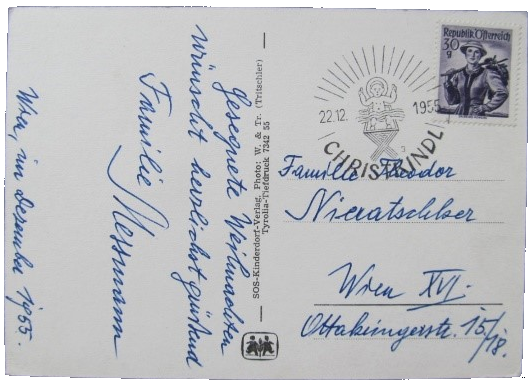 Gesegnete Weihnachten
wünscht herzlichst grüßend
Familie Messmann
Wien, im Dezember 1955.
SOS-Kinderdorf-Verlag, Photo: W. & Tr. (Tritschler)
Tyrolia-Tiefdruck 7342 55
Republik Österreich
30
g
22.12. 1955
CHRISTKINDL
Familie Theodor
Wien XVI.
Ottakringerstr. 15/
18.